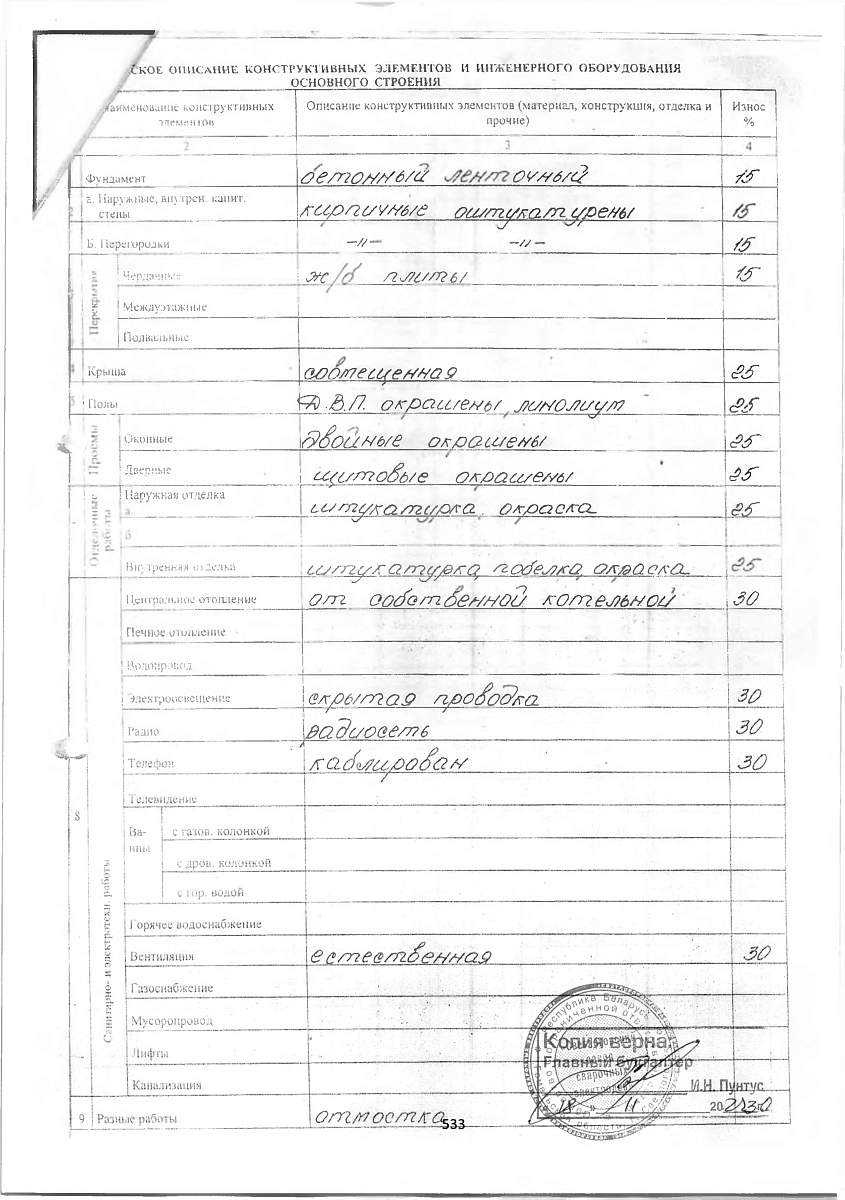 СКОЕ ОПИСАНИЕ КОНСТРУКТИВНЫХ ЭЛЕМЕНТОВ И ИНЖЕНЕРНОГО ОБОРУДОВАНИЯ
ОСНОВНОГО СТРОЕНИЯ
Наименование конструктивных элементов Описание конструктивных элементов (материал, конструкция, отделка и прочие) Износ %
2 3 4
Фундамент бетонный ленточный 15
а. Наружные, внутрен. капит. стены кирпичные оштукатурены 15
Б. Перегородки –〃– –〃– 15
Перекрытия
Чердачные ж/б плиты 15
Междуэтажные
Подвальные
4 Крыша совмещенная 25
5 Полы Д.В.П. окрашены, линолиум 25
Проемы
Оконные двойные окрашены 25
Дверные щитовые окрашены 25
Отделочные работы
Наружная отделка
а штукатурка, окраска 25
б
Внутренняя отделка штукатурка, побелка, окраска 25
8 Санитарно- и электротехн. работы
Центральное отопление от собственной котельной 30
Печное отопление
Водопровод
Электроосвещение скрытая проводка 30
Радио радиосеть 30
Телефон каблирован 30
Телевидение
Ванны
с газов. колонкой
с дров. колонкой
с гор. водой
Горячее водоснабжение
Вентиляция естественная 30
Газоснабжение
Мусоропровод
Лифты
Канализация
9 Разные работы отмостка
Республика Беларусь
Копия верна:
Главный бухгалтер
сварочных
электродов
И.Н. Пунтус
18 » 11 20
533